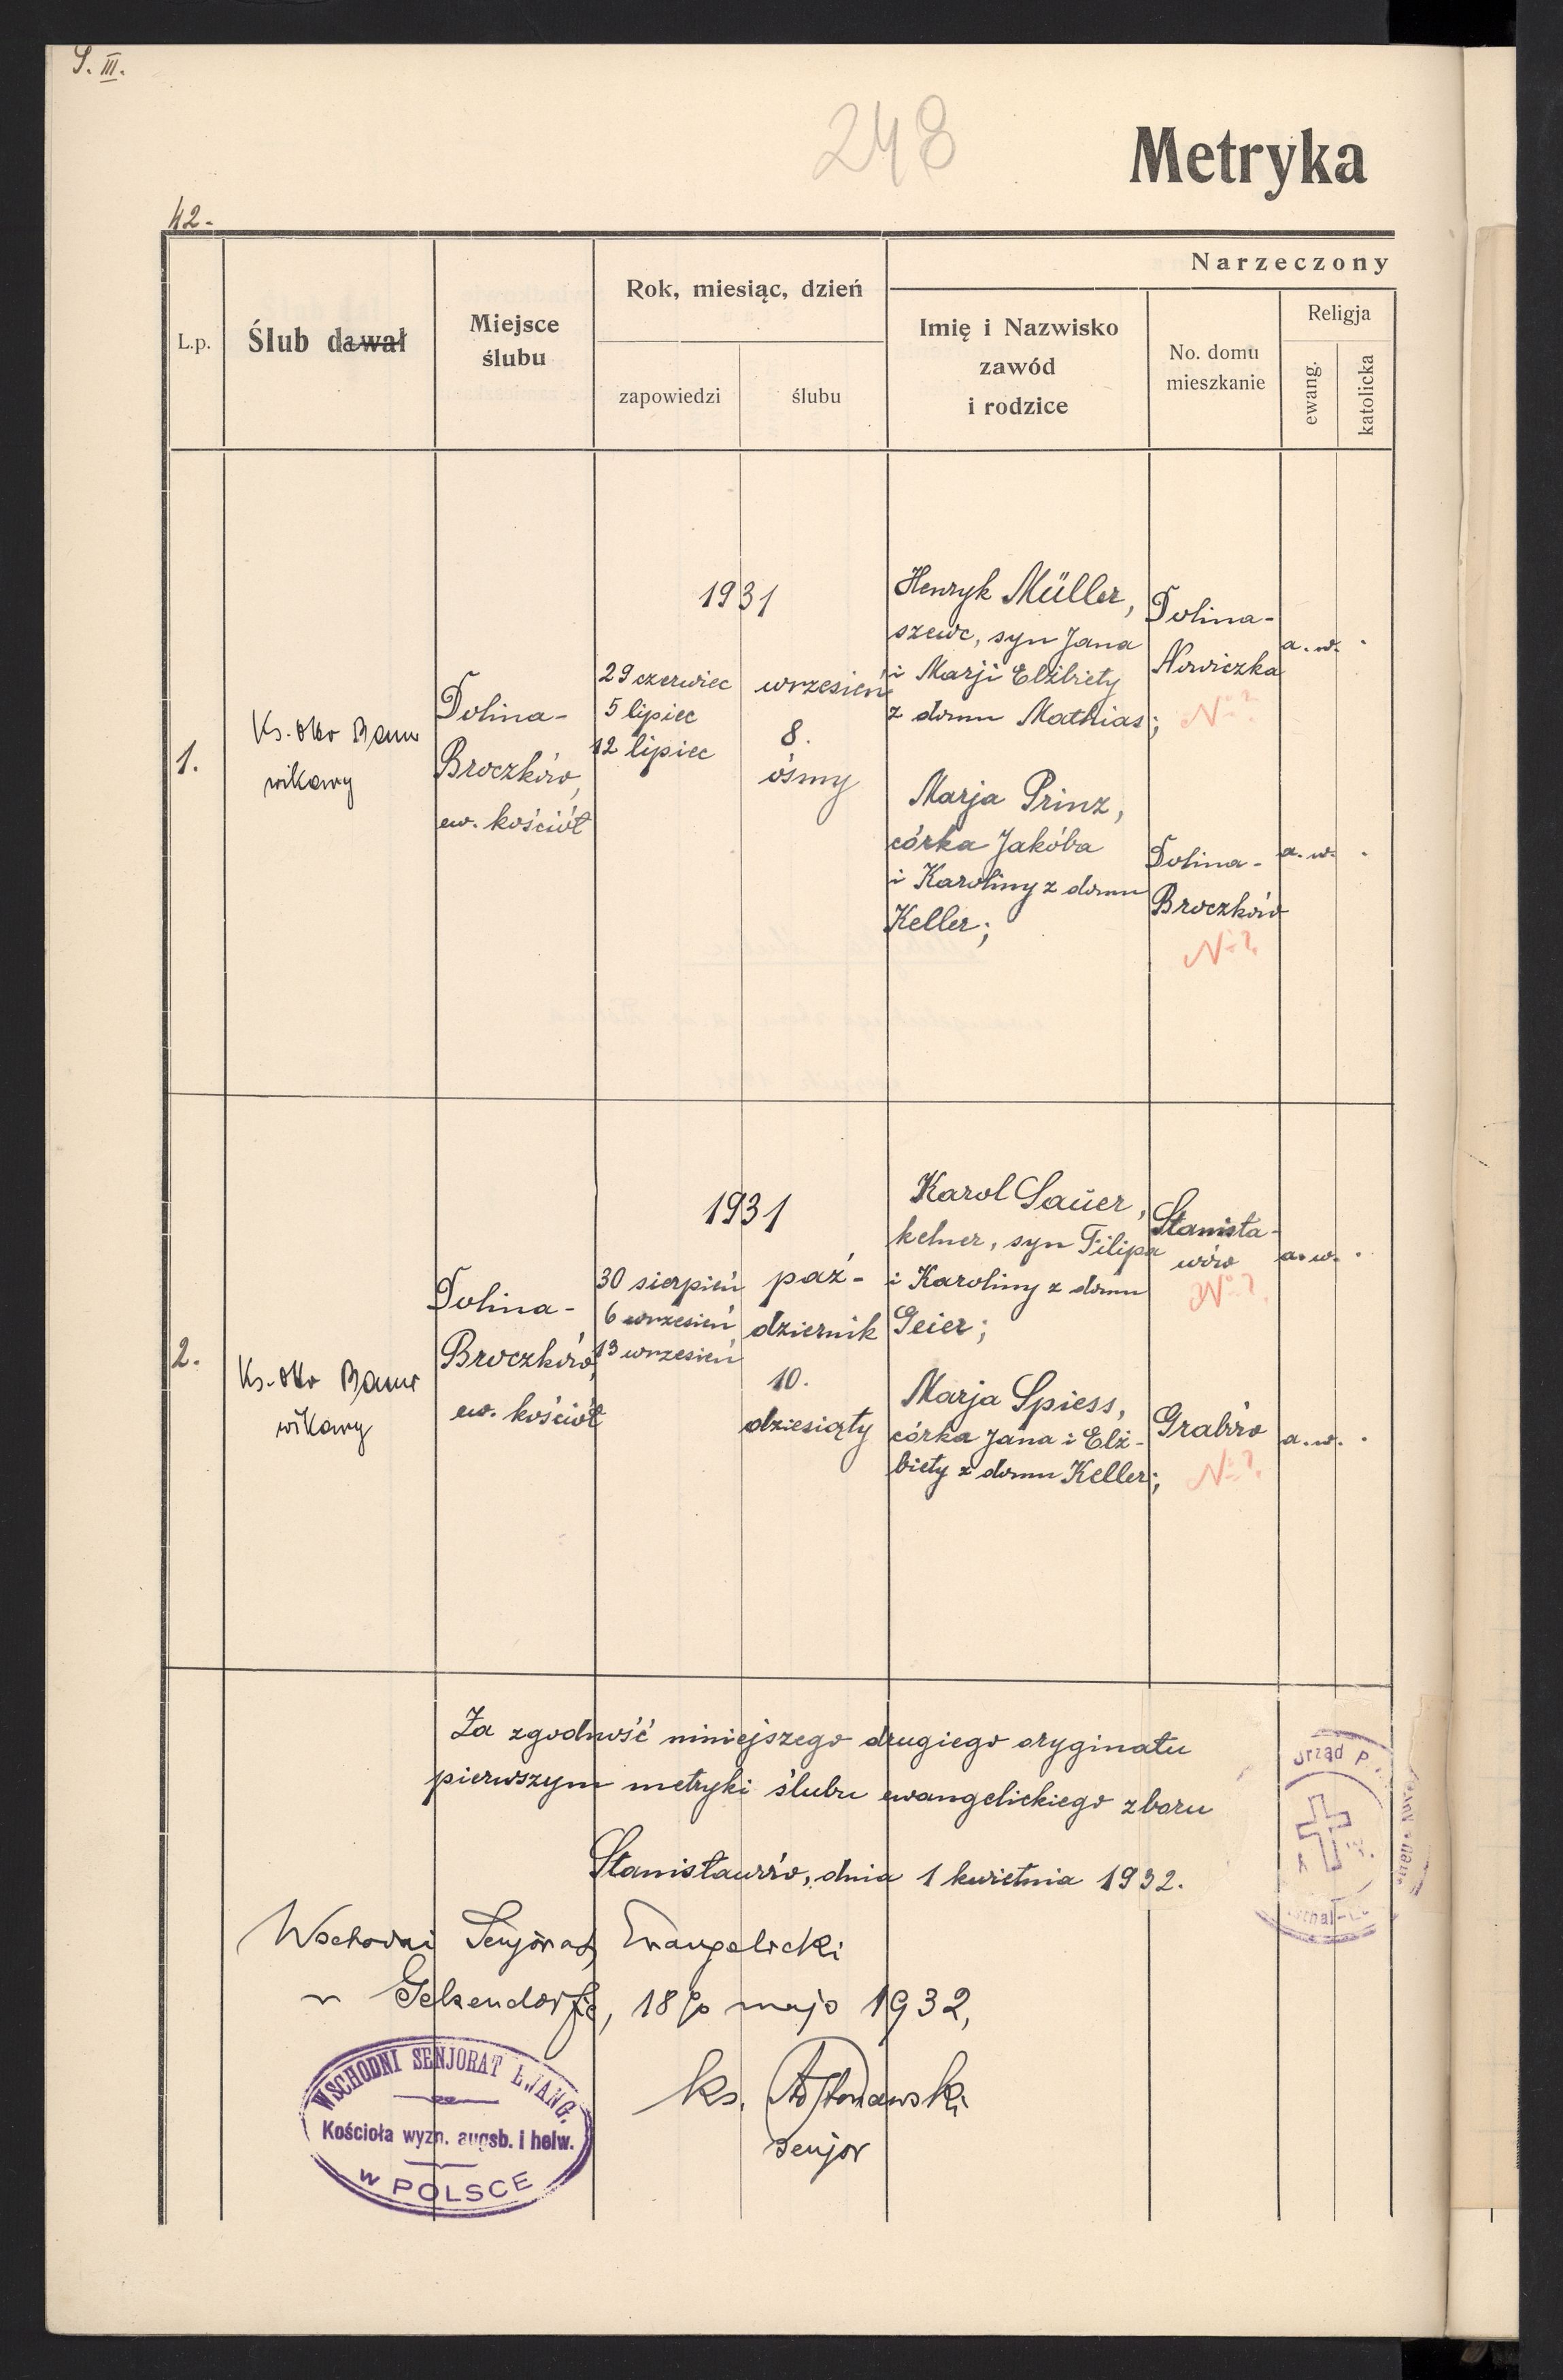 S. III.
248
Metryka
42.
L.p.
Ślub dawał
Miejsce
ślubu
Rok, miesiąc, dzień
zapowiedzi
ślubu
Narzeczony
Imię i Nazwisko
zawód
i rodzice
No. domu
mieszkanie
Religja
ewang.
katolicka
1.
Ks. Otto Bauer
wikary
Dolina-
Broczków,
ew. kościół
1931
29 czerwiec
5 lipiec
12 lipiec
wrzesień
8.
ósmy
Henryk Müller,
szewc, syn Jana
i Marji Elżbiety
z domu Mathias;
Dolina-
Nowiczka
N° ?
a. w.
Marja Prinz,
córka Jakóba
i Karoliny z domu
Keller;
Dolina-
Broczków
N° ?
a. w.
2.
Ks. Otto Bauer
wikary
Dolina-
Broczków,
ew. kościół
1931
30 sierpień
6 wrzesień
13 wrzesień
paź-
dziernik
10.
dziesiąty
Karol Sauer,
kelner, syn Filipa
i Karoliny z domu
Geier;
Stanisła-
wów
N° ?
a. w.
Marja Spiess,
córka Jana i Elż-
biety z domu Keller;
Grabów
N° ?
a. w.
Za zgodność niniejszego drugiego oryginału
pierwszym metryki ślubu ewangelickiego zboru
Stanisławów, dnia 1 kwietnia 1932.
Urząd P
thal
Wschodni Senjorat Ewangelicki
w Gelsendorfie, 18go maja 1932,
ks.
senjor
WSCHODNI SENJORAT EWANG.
Kościoła wyzn. augsb. i helw.
w POLSCE